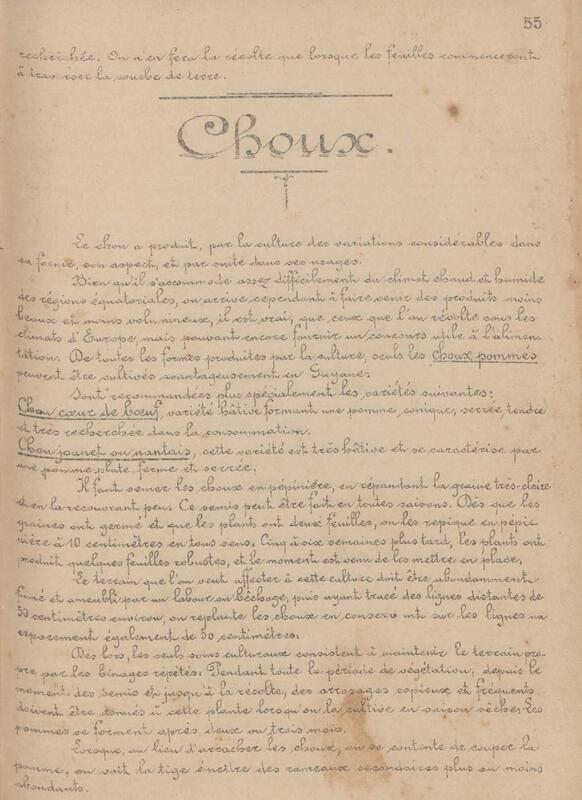 55
recherchée. On n'en fera la récolte que lorsque les feuilles commenceront
à trav rser la couche de terre.
Choux.
Le chou a produit, par la culture des variations considérables dans
sa forme, son aspect, et par suite dans ses usages.
Bien qu'il s'accommode assez difficilement du climat chaud et humide
des régions équatoriales, on arrive cependant à faire venir des produits moins
beaux et moins volumineux, il est vrai, que ceux que l'on récolte sous les
climats d'Europe, mais pouvant encore fournir un concours utile à l'alimen-
tation. De toutes les formes produites par la culture, seuls les choux pommés
peuvent être cultivés avantageusement en Guyane.
Sont recommandées plus spécialement les variétés suivantes:
Chou cœur de bœuf, variété hâtive formant une pomme, conique, serrée, tendre
et très recherchée dans la consommation.
Chou joanet ou nantais, cette variété est très hâtive et se caractérise par
une pomme plate, ferme et serrée.
Il faut semer les choux en pépinière, en répandant la graine très-claire
et en la recouvrant peu. Ce semis peut être fait en toutes saisons. Dès que les
graines ont germé et que les plants ont deux feuilles, on les repique en pépi-
nière à 10 centimètres en tous sens. Cinq à six semaines plus tard, les plants ont
produit quelques feuilles robustes, et le moment est venu de les mettre en place.
Le terrain que l'on veut affecter à cette culture doit être abondamment
fumé et ameubli par un labour ou bêchage, puis ayant tracé des lignes distantes de
50 centimètres environ, on replante les choux en conserv nt sur les lignes un
espacement également de 50 centimètres.
Dès lors, les seuls soins culturaux consistent à maintenir le terrain pro-
pre par les binages répétés. Pendant toute la période de végétation, depuis le
moment des semis et jusqu'à la récolte, des arrosages copieux et fréquents
doivent être donnés à cette plante lorsqu'on la cultive en saison sèche. Les
pommes se forment après deux ou trois mois.
Lorsque, au lieu d'arracher les choux, on se contente de couper la
pomme, on voit la tige émettre des rameaux secondaires plus ou moins
abondants.